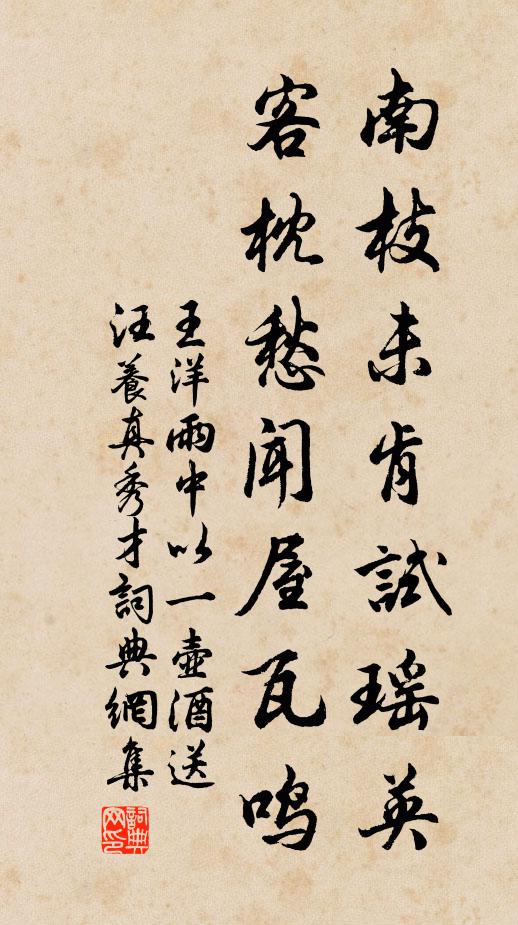 南枝未肯試瑶英
客枕愁闻屋瓦鸣
王洋雨中以一壺酒送
汪養真秀才詞典網集
詞典网印